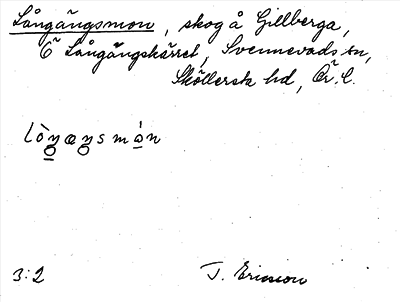 Långängsmon, skog å Gillberga,
Ö Långängskärret, Svennevads sn,
Sköllersta hd, Ör. l.
lòŋæŋsmón
3:2
T. Ericsson